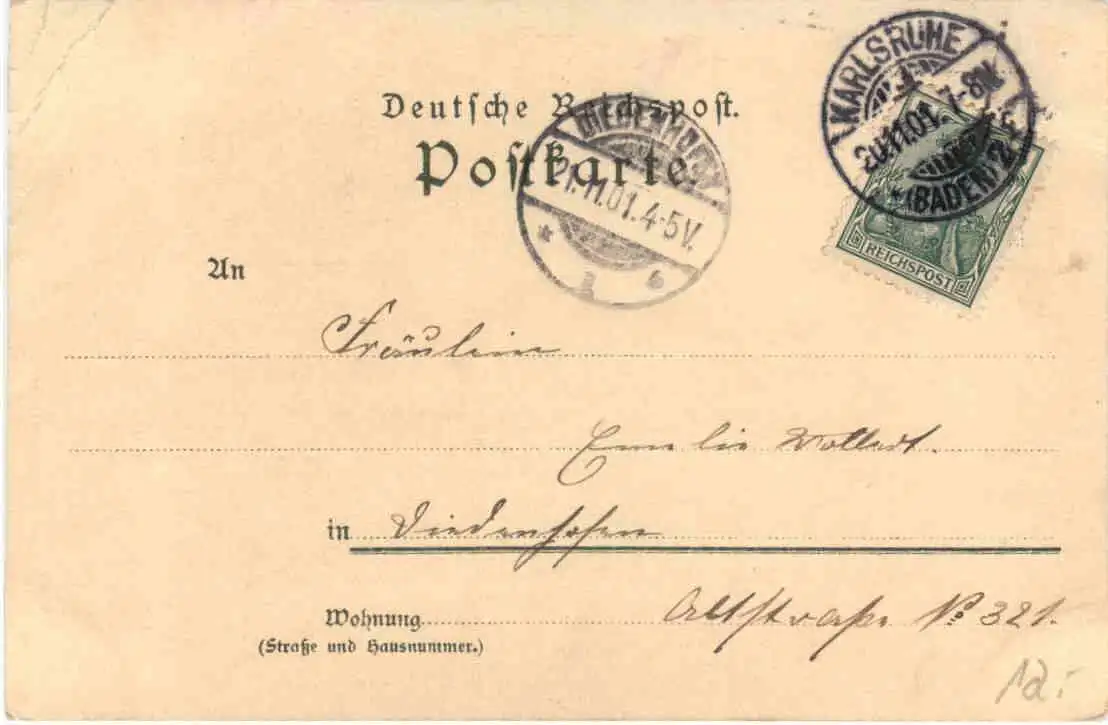 Deutsche Reichspost.
Postkarte.
KARLSRUHE
20.11.01. 7-8N.
*(BADEN)2
REICHSPOST
DIEDENHOFEN
21.11.01.4-5V.
An
Fräulein
Emelie
in Diedenhofen
Wohnung Altstraße No 321.
(Straße und Hausnummer.)